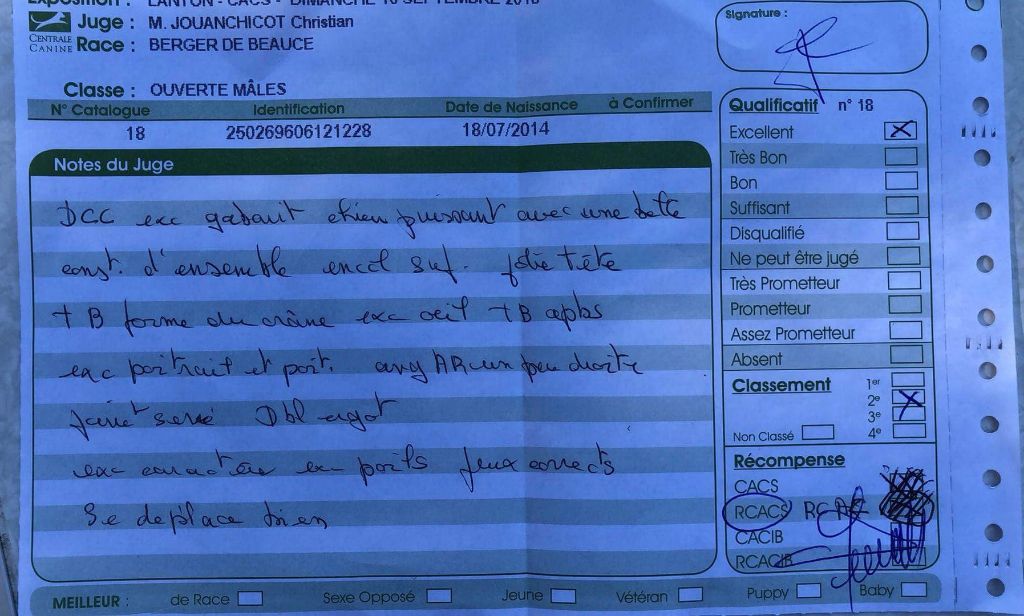 Exposition : LANTON - CACS - DIMANCHE 16 SEPTEMBRE 2018
Juge : M. JOUANCHICOT Christian
CENTRALE CANINE
Race : BERGER DE BEAUCE
Classe : OUVERTE MÂLES
N° Catalogue Identification Date de Naissance à Confirmer
18 250269606121228 18/07/2014
Notes du Juge
DCC exc gabarit chien puissant avec une belle
const. d'ensemble encol suf. jolie tête
+ B forme du crâne exc oeil + B aplbs
exc poitrail et poit. ang AR un peu droite
jarret serré Dbl ergot
exc caractère exc poils feux corrects
Se deplace bien
Signature :
Qualificatif n° 18
Excellent
Très Bon
Bon
Suffisant
Disqualifié
Ne peut être jugé
Très Prometteur
Prometteur
Assez Prometteur
Absent
Classement 1er
2e
3e
Non Classé 4e
Récompense
CACS
RCACS RCAC
CACIB
RCACIB
MEILLEUR : de Race Sexe Opposé Jeune Vétéran Puppy Baby